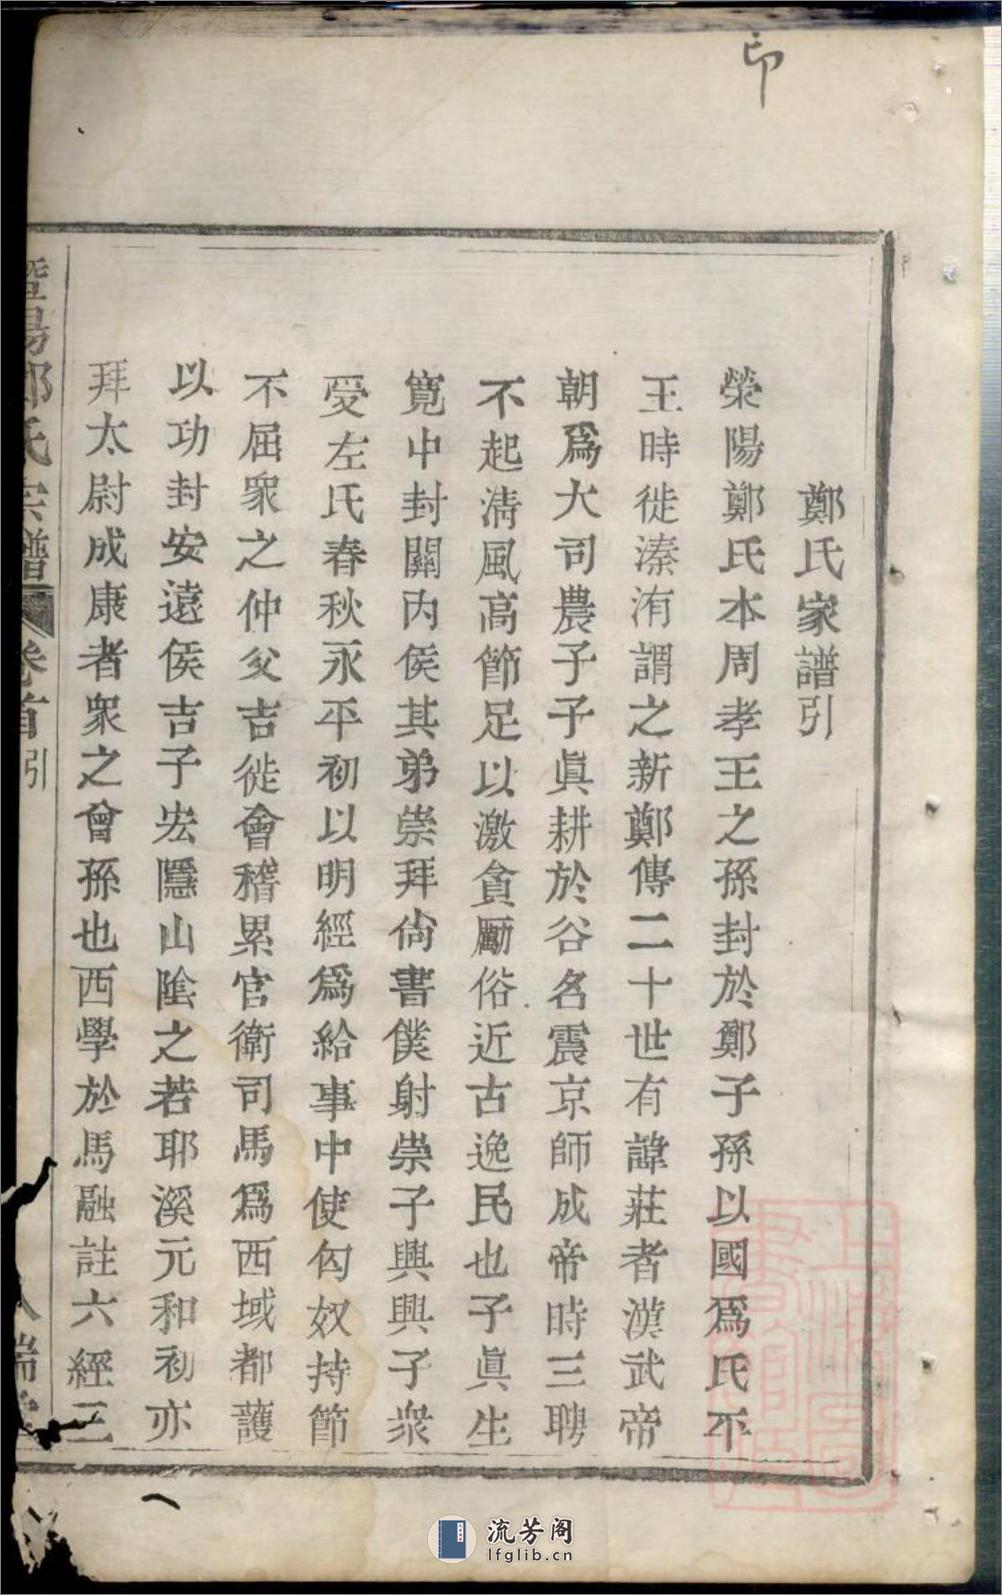 印
鄭氏家譜引
滎陽鄭氏本周孝王之孫封於鄭子孫以國爲氏平
王時徙溱洧謂之新鄭傳二十世有諱莊者漢武帝
朝爲大司農子子眞耕於谷名震京師成帝時三聘
不起清風高節足以激貪勵俗近古逸民也子眞生
寛中封關内侯其弟崇拜尙書僕射崇子興興子衆
受左氏春秋永平初以明經爲給事中使匈奴持節
不屈衆之仲父吉徙會稽累官衛司馬爲西域都護
以功封安遠侯吉子宏隱山陰之若耶溪元和初亦
拜太尉成康者衆之會孫也西學於馬融註六經三
暨陽鄭氏宗譜 卷首 引
流芳阁
lfglib.cn